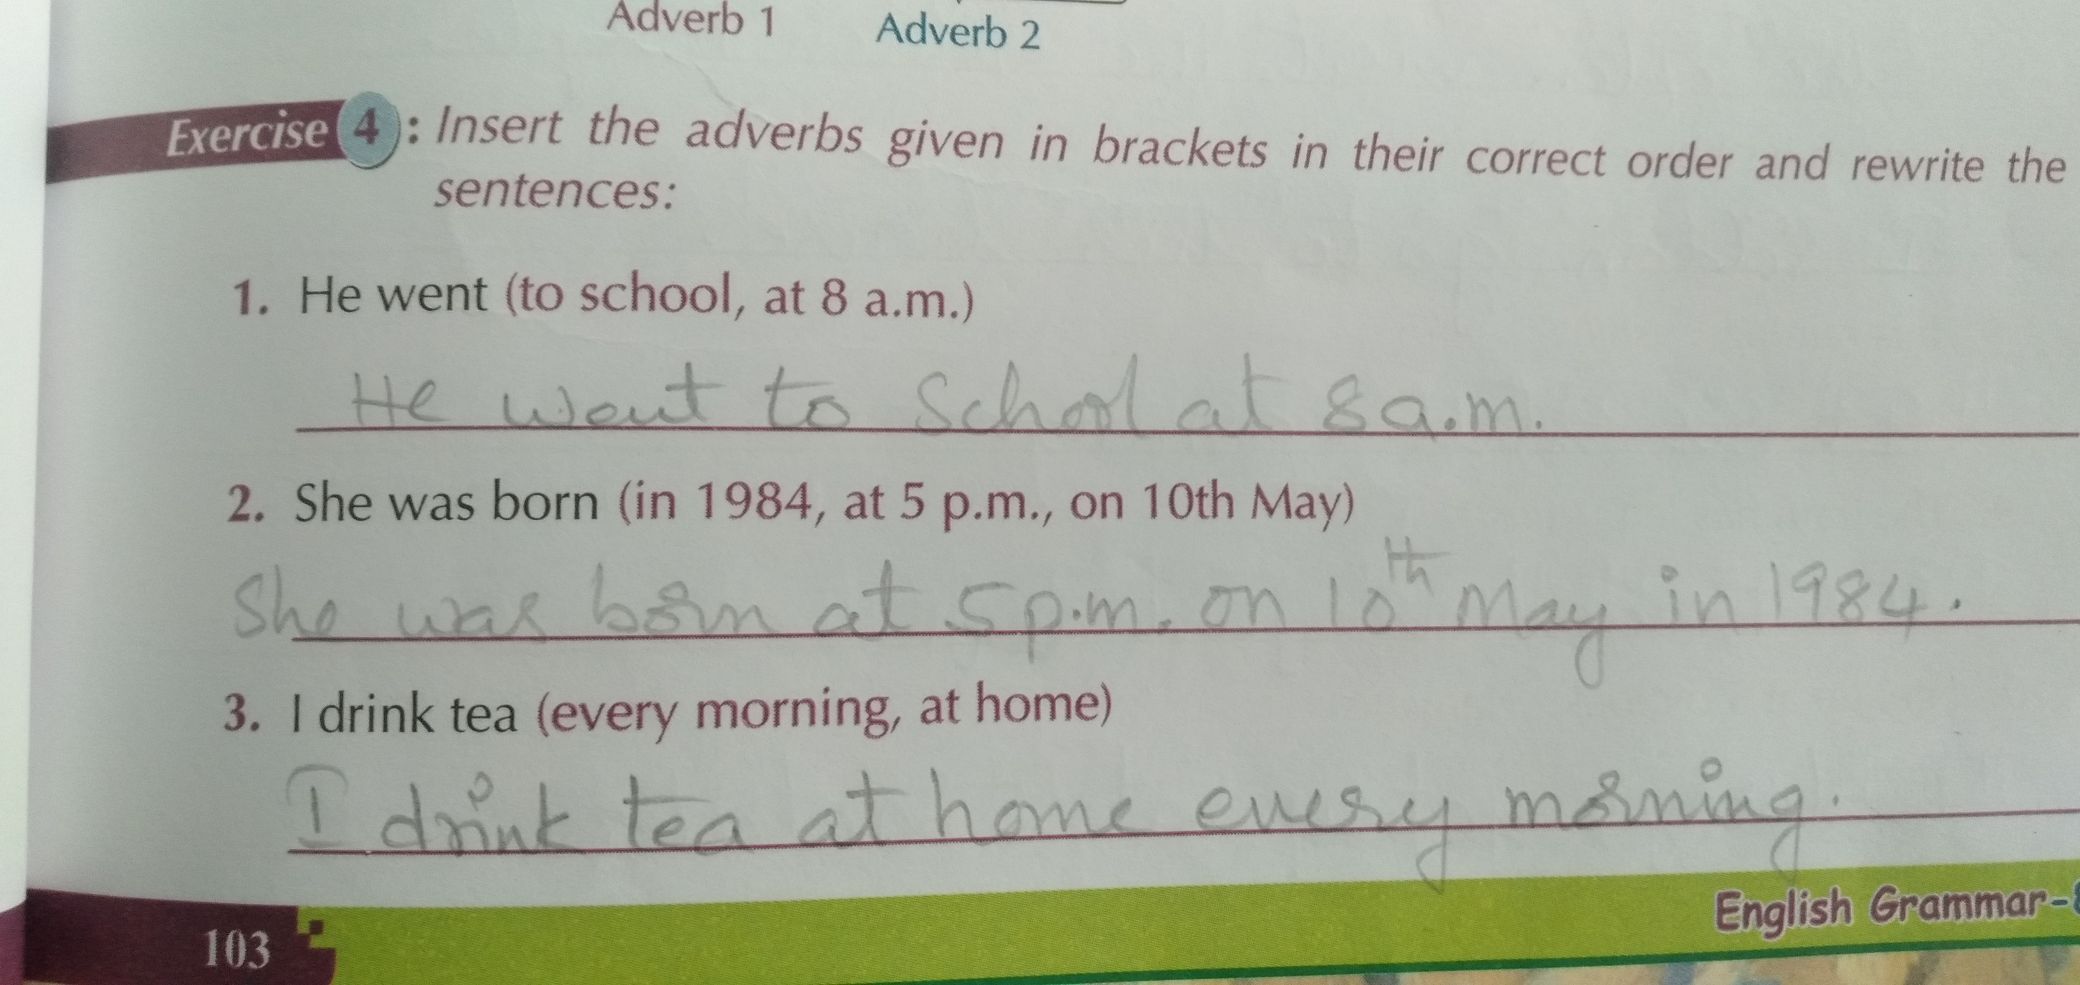 Adverb 1 Adverb 2
Exercise 4 : Insert the adverbs given in brackets in their correct order and rewrite the
sentences:
1. He went (to school, at 8 a.m.)
He went to School at 8 a.m.
2. She was born (in 1984, at 5 p.m., on 10th May)
She was born at 5 p.m. on 10th May in 1984.
3. I drink tea (every morning, at home)
I drink tea at home every morning.
English Grammar-
103